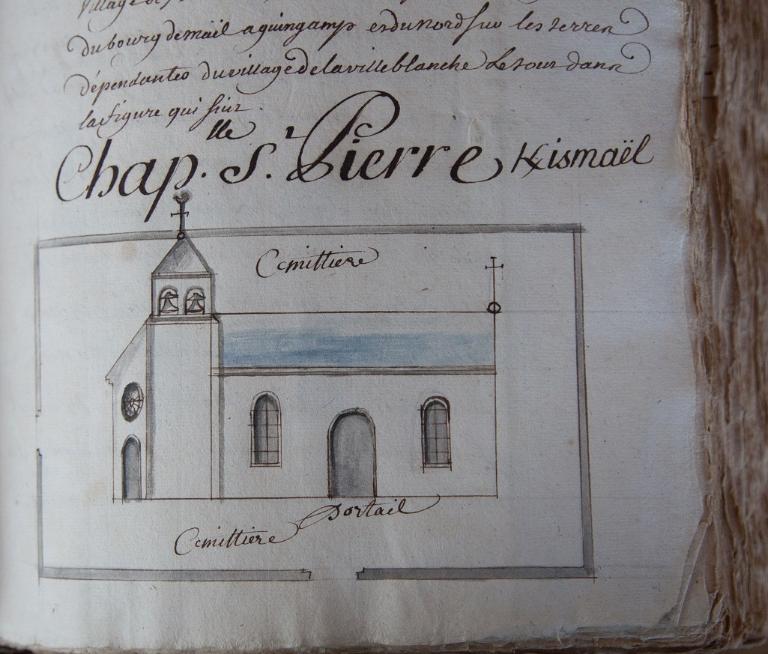 village de
du bourg de maël a guingamp et du nord sur les terres
dépendantes du village de la ville blanche le tout dans
la figure qui suit.
Chap.lle S.t Pierre Kismaël
Cemittiere
portail
Cemittiere